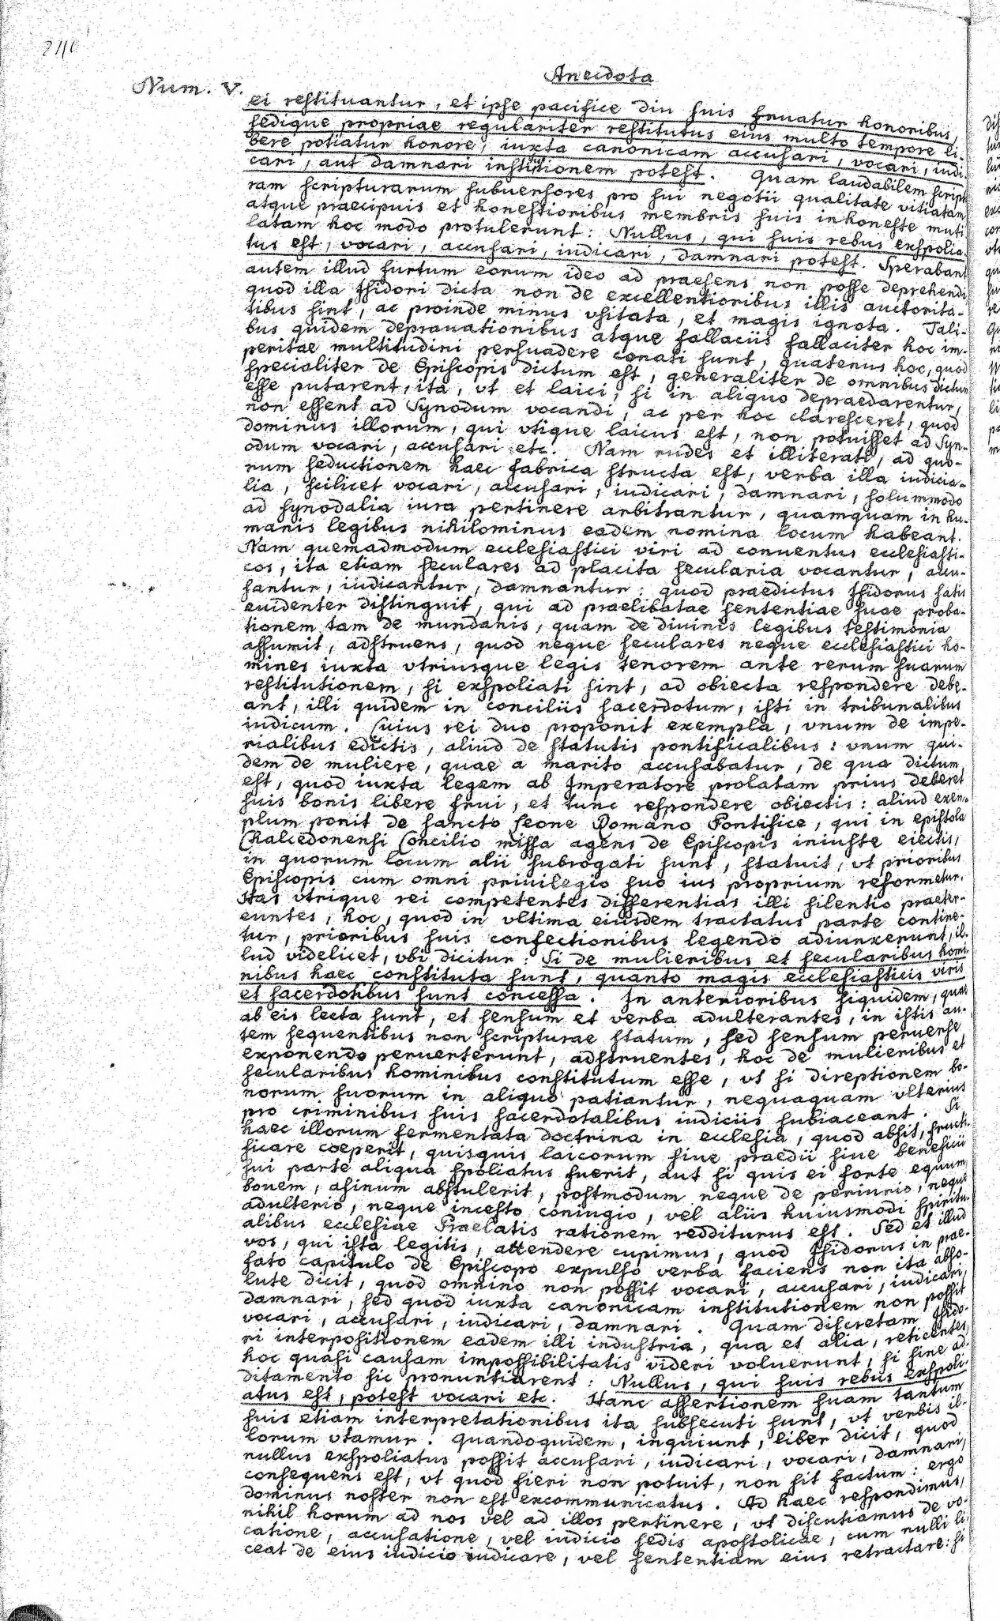 240
Anecdota
Num. V.
ei restituantur, et ipse pacifice diu suis fruatur honoribus,
sedique propriae regulariter restitutus eius multo tempore li-
bere potiatur honore, iuxta canonicam accusari, vocari, iudi-
cari, aut damnari institutionem potest. Quam laudabilem script
ram scripturarum subuersores pro sui negotii qualitate vitiatam
atque praecipuis et honestioribus membris suis inhoneste muti
latam hoc modo protulerunt: Nullus, qui suis rebus exspolia
tus est, vocari, accusari, iudicari, damnari potest. Sperabant
autem illud furtum eorum ideo ad praesens non posse deprehendi
quod illa Isidori dicta non de excellentioribus illis auctorita-
tibus sint, ac proinde minus vsitata, et magis ignota. Tali-
bus quidem deprauationibus atque fallaciis fallaciter hoc im-
peritae multitudini persuadere conati sunt, quatenus hoc, quod
specialiter de Episcopis dictum est, generaliter de omnibus dictum
esse putarent, ita, vt et laici, si in aliquo depraedarentur,
non essent ad Synodum vocandi, ac per hoc claresceret, quod
dominus illorum, qui vtique laicus est, non potuisset ad Syn-
odum vocari, accusari etc. Nam rudes et illiterati, ad quo-
rum seductionem haec fabrica structa est, verba illa iudicia-
lia, scilicet vocari, accusari, iudicari, damnari, solummodo
ad synodalia iura pertinere arbitrantur, quamquam in hu-
manis legibus nihilominus eadem nomina locum habeant.
Nam quemadmodum ecclesiastici viri ad conuentus ecclesiasti-
cos, ita etiam seculares ad placita secularia vocantur, accu-
santur, iudicantur, damnantur: quod praedictus Isidorus satis
euidenter distinguit, qui ad praelibatae sententiae suae proba-
tionem, tam de mundanis, quam de diuinis legibus testimonia
assumit, adstruens, quod neque seculares neque ecclesiastici ho-
mines iuxta vtriusque legis tenorem ante rerum suarum
restitutionem, si exspoliati sint, ad obiecta respondere debe-
ant, illi quidem in conciliis sacerdotum, isti in tribunalibus
iudicum. Cuius rei duo proponit exempla, vnum de impe-
rialibus edictis, aliud de statutis pontificalibus: vnum qui-
dem de muliere, quae a marito accusabatur, de qua dictum
est, quod iuxta legem ab Imperatore prolatam prius deberet
suis bonis libere frui, et tunc respondere obiectis: aliud exem-
plum ponit de sancto Leone Romano Pontifice, qui in epistola
Chalcedonensi Concilio missa agens de Episcopis iniuste eiectis,
in quorum locum alii subrogati sunt, statuit, vt prioribus
Episcopis cum omni priuilegio suo ius proprium reformetur.
Has vtrique rei competentes differentias illi silentio praeter-
euntes, hoc, quod in vltima eiusdem tractatus parte contine-
tur, prioribus suis confectionibus legendo adiunxerunt, il-
lud videlicet, vbi dicitur: Si de mulieribus et secularibus homi
nibus haec constituta sunt, quanto magis ecclesiasticis viris
et sacerdotibus sunt concessa. In anterioribus siquidem, quae
ab eis lecta sunt, et sensum et verba adulterantes, in istis au-
tem sequentibus non scripturae statum, sed sensum peruerse
exponendo peruerterunt, adstruentes, hoc de mulieribus et
secularibus hominibus constitutum esse, vt si direptionem bo-
norum suorum in aliquo patiantur, nequaquam vlterius
pro criminibus suis sacerdotalibus iudiciis subiaceant. Si
haec illorum fermentata doctrina in ecclesia, quod absit, fructi
ficare coeperit, quisquis laicorum siue praedii siue beneficii
sui parte aliqua spoliatus fuerit, aut si quis ei forte equum,
bouem, asinum abstulerit, postmodum neque de periurio, neque
adulterio, neque incesto coniugio, vel aliis huiusmodi spiritu-
alibus ecclesiae Praelatis rationem redditurus est. Sed et illud
vos, qui ista legitis, attendere cupimus, quod Isidorus in prae-
fato capitulo de Episcopo expulso verba faciens non ita abso-
lute dicit, quod omnino non possit vocari, accusari, iudicari,
damnari, sed quod iuxta canonicam institutionem non possit
vocari, accusari, iudicari, damnari. Quam discretam Isido-
ri interpositionem eadem illi industria, qua et alia, reticentes,
hoc quasi causam impossibilitatis videri voluerunt, si sine ad-
ditamento sic pronuntiarent: Nullus, qui suis rebus exspoli-
atus est, potest vocari etc. Hanc assertionem suam tantum
suis etiam interpretationibus ita subsecuti sunt, vt verbis il-
lorum vtamur. Quandoquidem, inquiunt, liber dicit, quod
nullus exspoliatus possit accusari, iudicari, vocari, damnari,
consequens est, vt quod fieri non potuit, non sit factum: ergo
dominus noster non est excommunicatus. Ad haec respondimus,
nihil horum ad nos vel ad illos pertinere, vt discutiamus de vo-
catione, accusatione, vel iudicio sedis apostolicae, cum nulli li-
ceat de eius iudicio iudicare, vel sententiam eius retractare: si